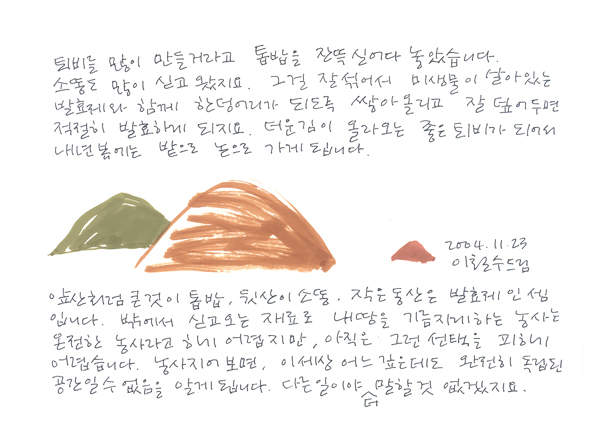 퇴비를 많이 만들거라고 톱밥을 잔뜩 실어다 놓았습니다.
소똥도 많이 싣고 왔지요. 그걸 잘 섞어서 미생물이 살아있는
발효제와 함께 한덩어리가 되도록 쌓아올리고 잘 덮어두면
적절히 발효하게 되지요. 더운김이 올라오는 좋은 퇴비가 되어서
내년 봄에는 밭으로 논으로 가게 됩니다.
2004.11.23
이철수드림
앞산처럼 큰 것이 톱밥, 뒷산이 소똥. 작은 동산은 발효제인 셈
입니다. 밖에서 싣고오는 재료로 내땅을 기름지게하는 농사는
온전한 농사라고 하기 어렵지만, 아직은 그런 선택을 피하기
어렵습니다. 농사지어 보면, 이세상 어느 깊은데도 완전히 독립된
공간일 수 없음을 알게 됩니다. 다른일이야 더 말할 것 없겠지요.